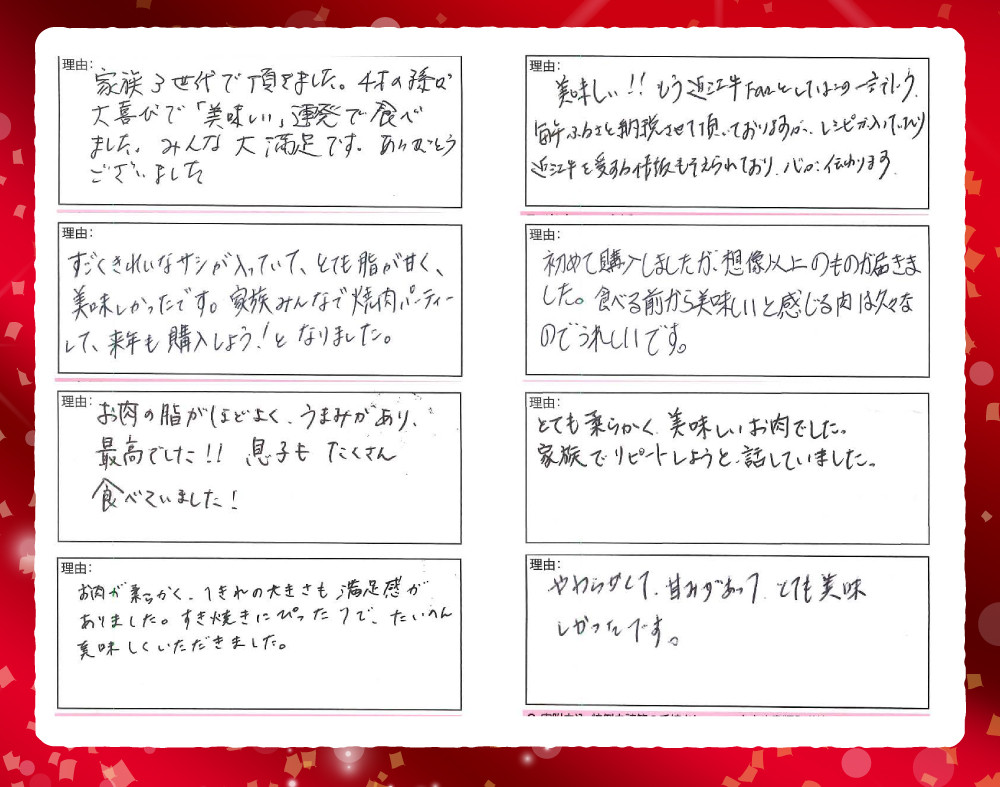 理由：
家族3世代で頂きました。4才の孫が
大喜びで「美味しい」連発で食べ
ました。みんな大満足です。ありがとう
ございました
理由：
すごくきれいなサシが入っていて、とても脂が甘く、
美味しかったです。家族みんなで焼肉パーティー
して、来年も購入しよう！となりました。
理由：
お肉の脂がほどよく、うまみがあり、
最高でした!! 息子もたくさん
食べていました！
理由：
お肉が柔らかく、1きれの大きさも満足感が
ありました。すき焼きにぴったりで、たいへん
美味しくいただきました。
理由：
美味しい!! もう近江牛Fanとしては
毎年ふるさと納税させて頂いておりますが、レシピが入って
近江牛を愛する もそえられており、心が伝わります。
理由：
初めて購入しましたが、想像以上のものが届きま
した。食べる前から美味しいと感じる肉は久々な
のでうれしいです。
理由：
とても柔らかく、美味しいお肉でした。
家族でリピートしようと、話していました。
理由：
やわらかくて、甘みがあって、とても美味
しかったです。